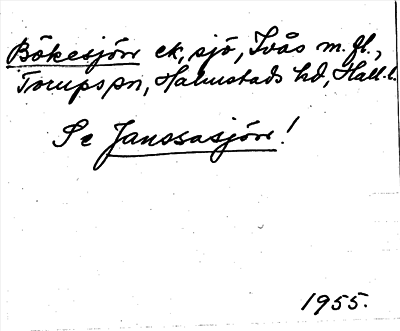 Bökesjön ek, sjö, Ivås m. fl.,
Torups sn, Halmstads hd, Hall. l.
Se Janssasjön!
1955.